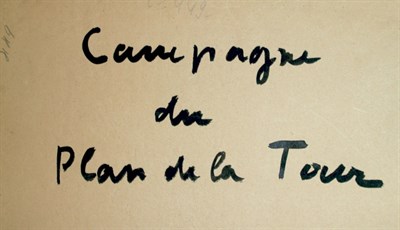 Campagne
du
Plan de la Tour